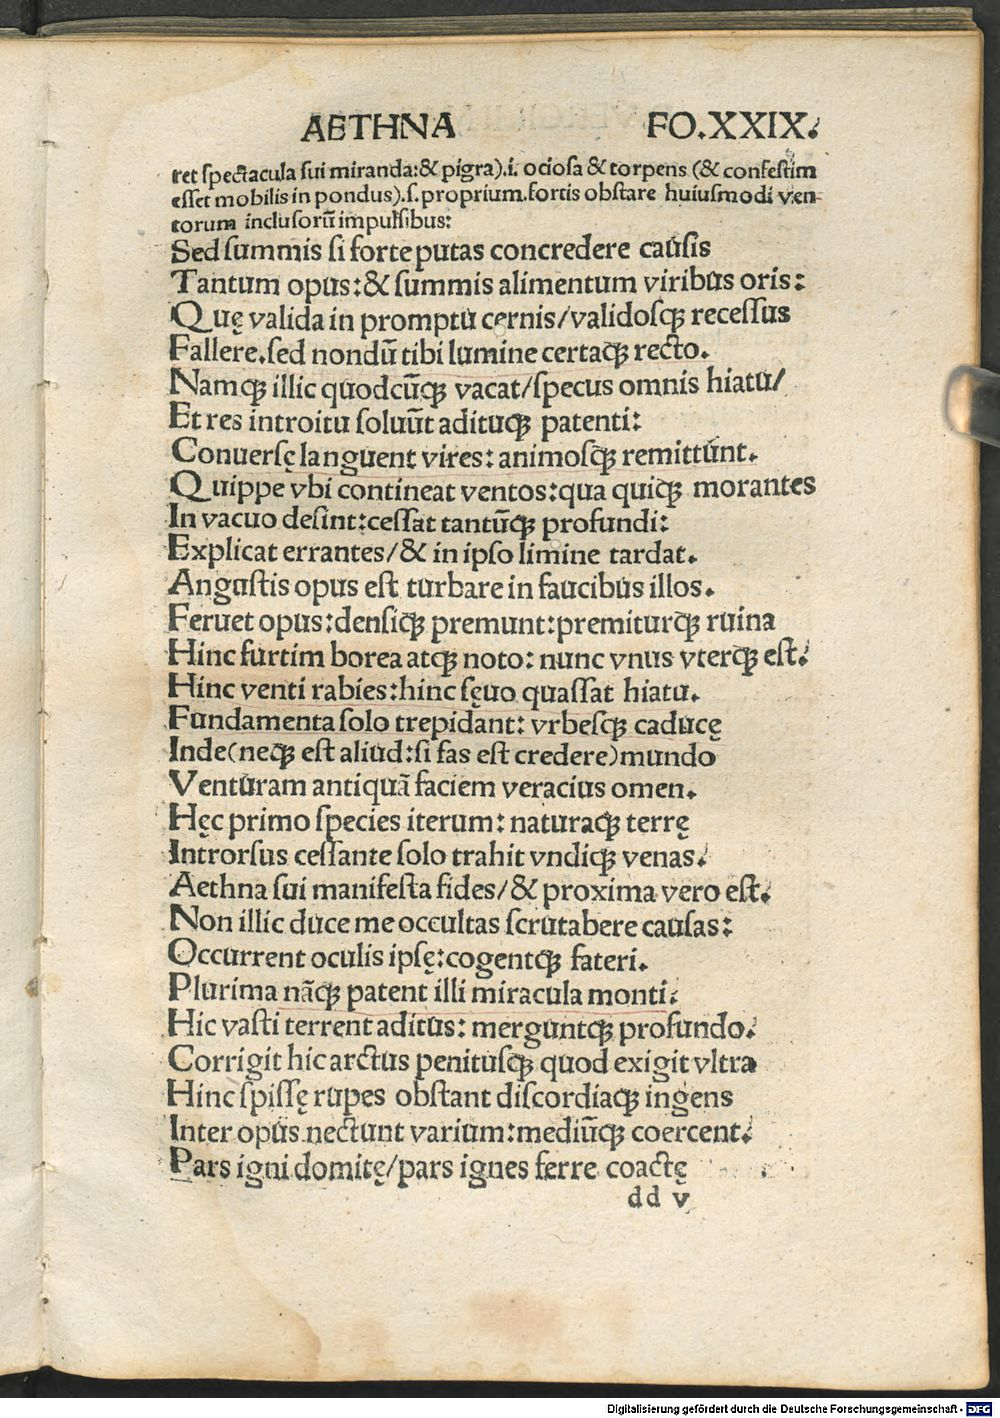 AETHNA FO.XXIX.
ret spectacula sui miranda:& pigra).i. ociosa & torpens (& confestim
esset mobilis in pondus).s.proprium.fortis obstare huiusmodi ven-
torum inclusorũ impulsibus:
Sed summis si forte putas concredere causis
Tantum opus:& summis alimentum viribus oris:
Quę valida in promptu cernis/validosq; recessus
Fallere.sed nondũ tibi lumine certaq; recto.
Namq; illic quodcũq; vacat/specus omnis hiatu/
Et res introitu soluũt adituq; patenti:
Conuersę languent vires: animosq; remittunt.
Quippe vbi contineat ventos:qua quicq; morantes
In vacuo desint:cessat tantũq; profundi:
Explicat errantes/& in ipso limine tardat.
Angustis opus est turbare in faucibus illos.
Feruet opus:densiq; premunt:premiturq; ruina
Hinc furtim borea atq; noto: nunc vnus vterq; est.
Hinc venti rabies:hinc sęuo quassat hiatu.
Fundamenta solo trepidant: vrbesq; caducę
Inde(neq; est aliud:si fas est credere)mundo
Venturam antiquã faciem veracius omen.
Hęc primo species iterum: naturaq; terrę
Introrsus cessante solo trahit vndiq; venas.
Aethna sui manifesta fides/& proxima vero est.
Non illic duce me occultas scrutabere causas:
Occurrent oculis ipsę:cogentq; fateri.
Plurima nãq; patent illi miracula monti.
Hic vasti terrent aditus: merguntq; profundo.
Corrigit hic arctus penitusq; quod exigit vltra
Hinc spissę rupes obstant discordiaq; ingens
Inter opus nectunt varium:mediũq; coercent.
Pars igni domitę/pars ignes ferre coactę
dd v
Digitalisierung gefördert durch die Deutsche Forschungsgemeinschaft - DFG